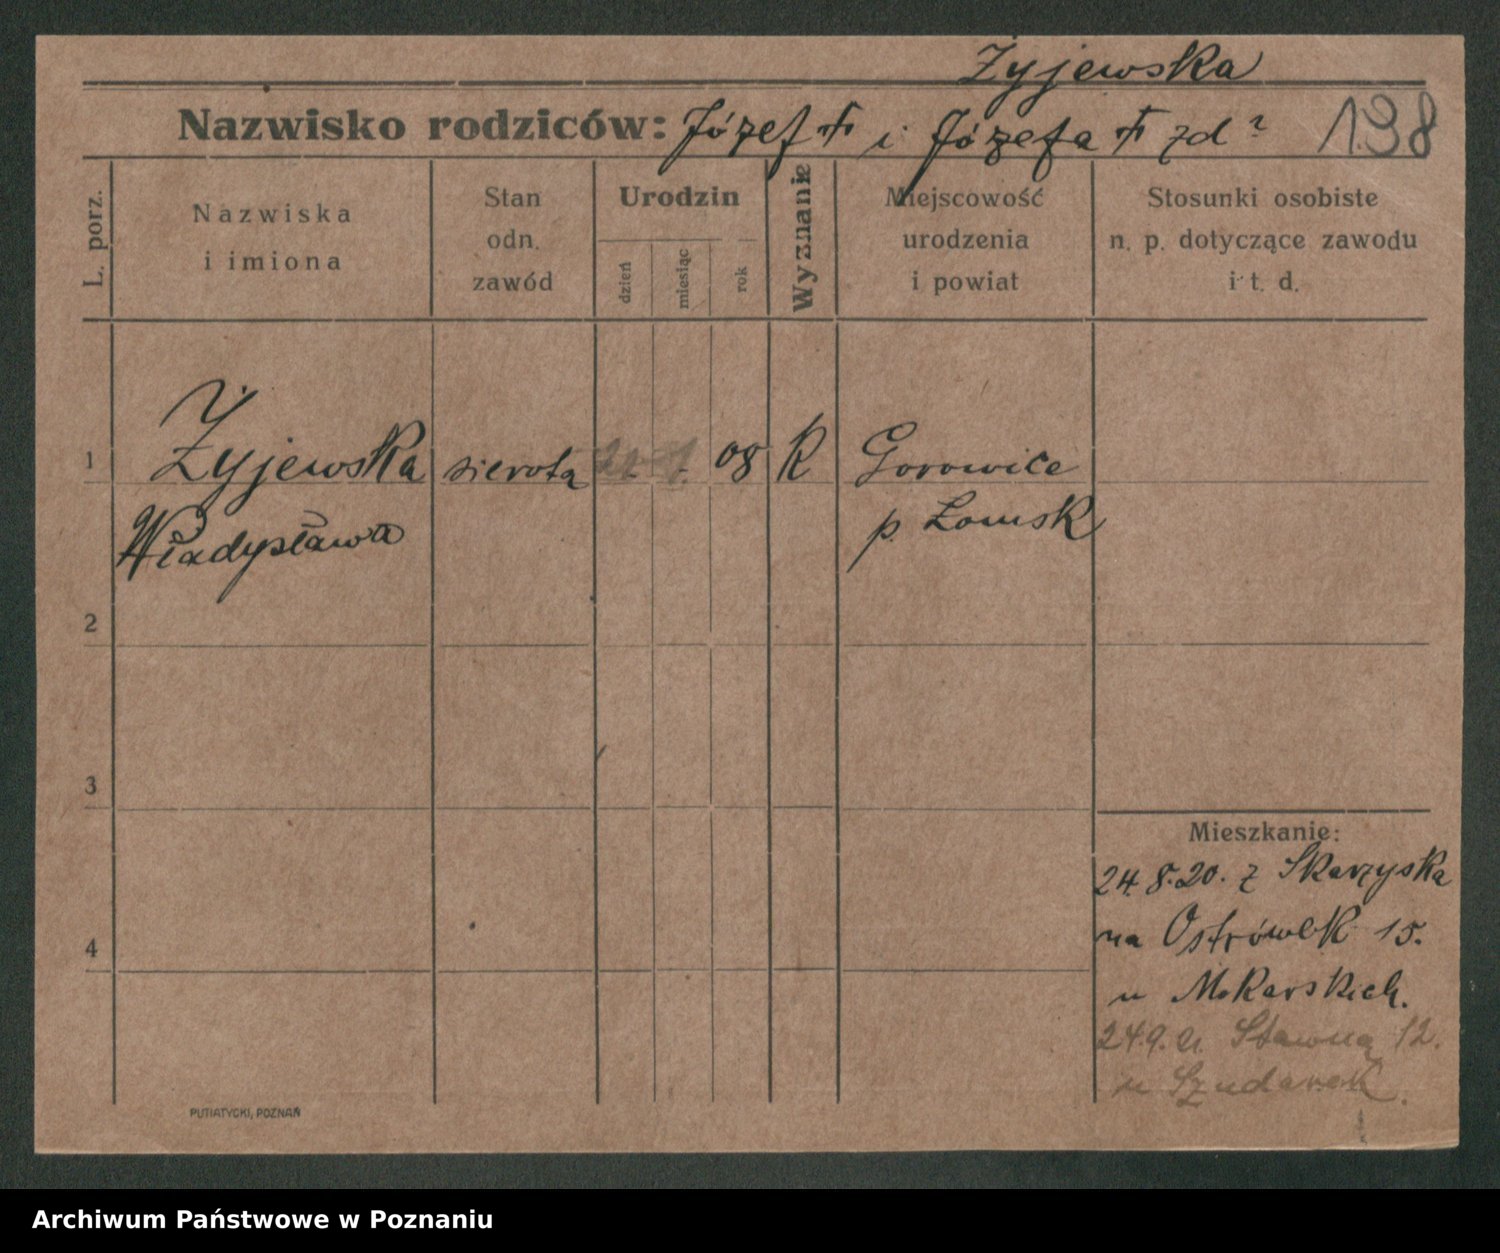 Żyjewska
Nazwisko rodziców: Józef † i Józefa † zd ?
198
L. porz.
Nazwiska
i imiona
Stan
odn.
zawód
Urodzin
dzień
miesiąc
rok
Wyznanie
Miejscowość
urodzenia
i powiat
Stosunki osobiste
n. p. dotyczące zawodu
i t. d.
1
Żyjewska sierota 08 K Gorowice
Władysława
p. Łomsk
2
3
4
Mieszkanie:
24.8.20. z Skarzyska
na Ostrówek 15.
u Mokarskich.
24.9.21. Stawna 12.
u Szudarek.
PUTIATYCKI, POZNAŃ
Archiwum Państwowe w Poznaniu